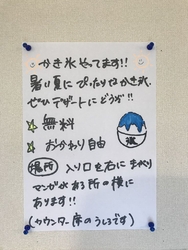 かき氷やってます!!
暑い夏にぴったりなかき氷、
ぜひデザートにどうぞ!!
☆ 無料
☆ おかわり自由
氷
場所 入り口を右にまがり
マンガのある所の横に
あります!!
(カウンター席のうしろです)